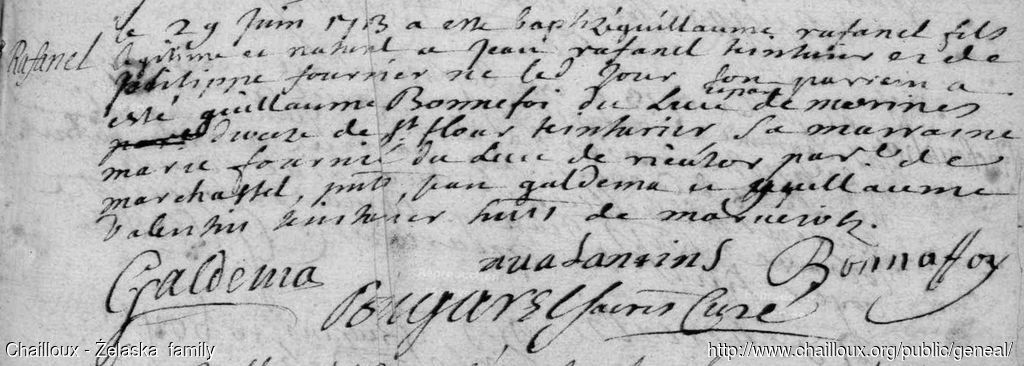 Rafanel
le 29 Juin 1713 a este baptizé guillaume rafanel fils
legitime et naturel a Jean rafanel teinturier et de
philippe fournier ne led Jour son parrein a
esté guillaume Bonnefoi du Lieu de
diocese de St flour teinturier Sa marraine
marie fournié du Lieu de rieutor par. de
marchastel, pnts, jean galdema et guillaume
Valentin teinturier hurs de marueiols.
Galdema
Bonnafoy
Curé
Chailloux - Żelaska family
http://www.chailloux.org/public/geneal/